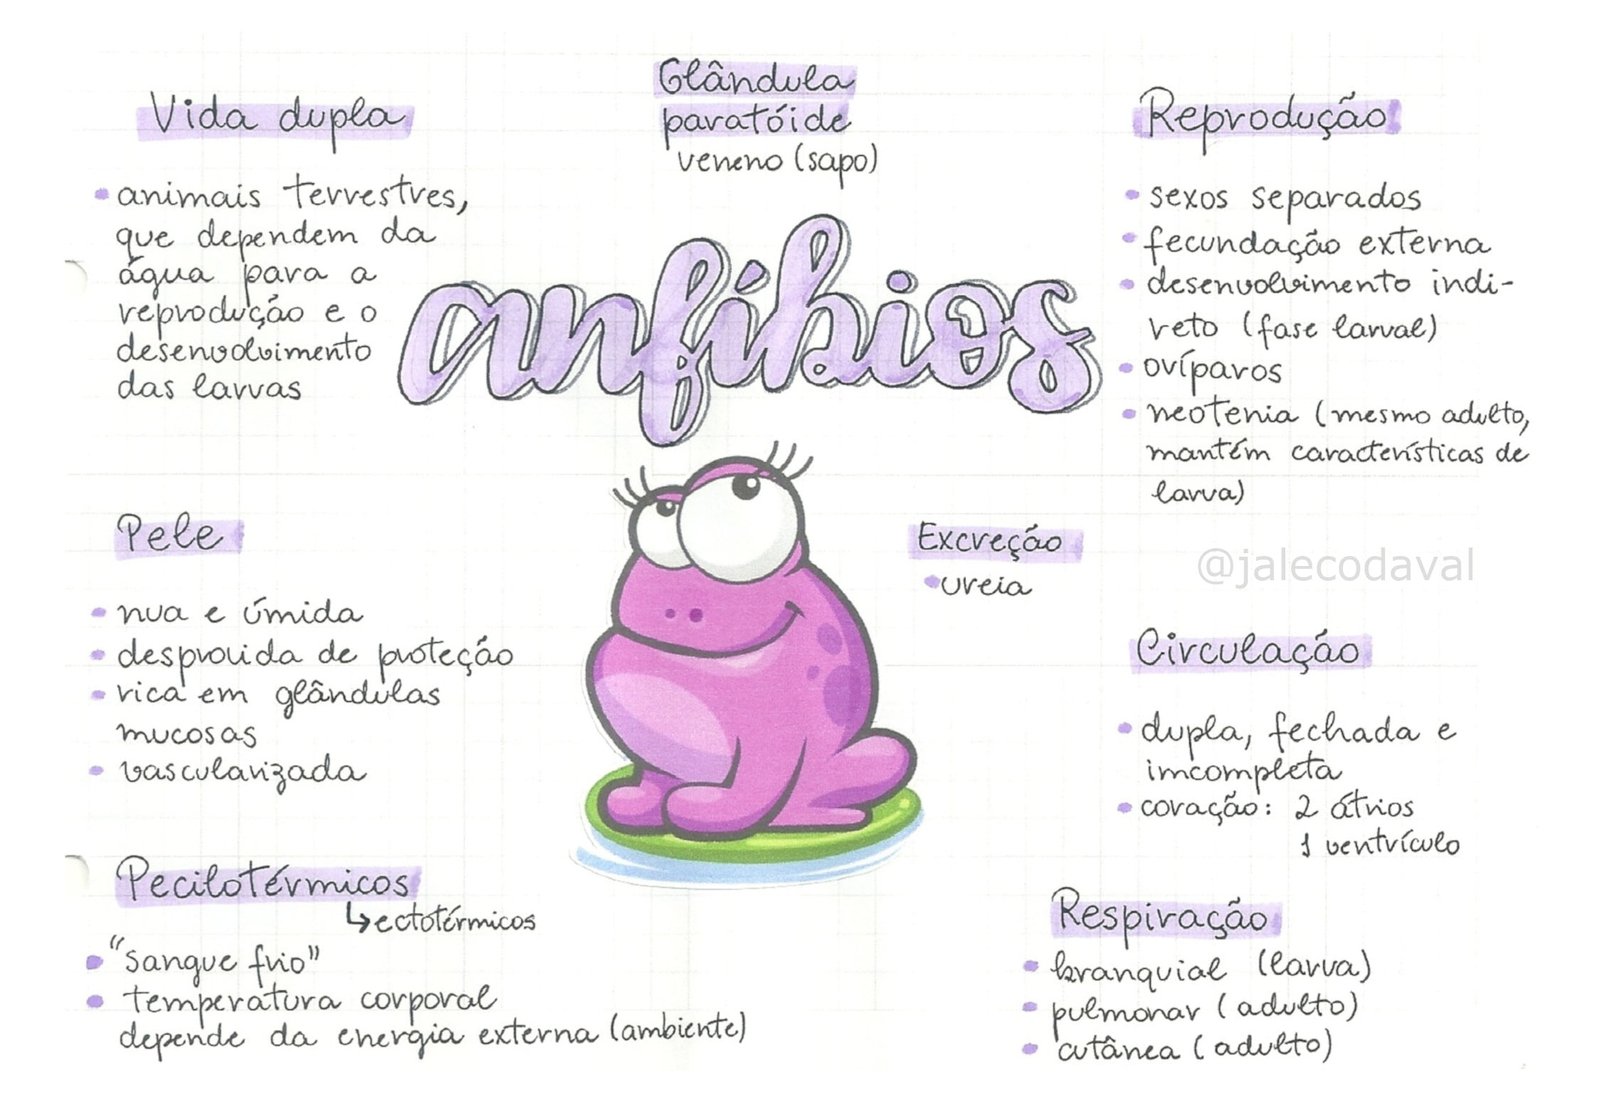 Vida dupla
• animais terrestres,
que dependem da
água para a
reprodução e o
desenvolvimento
das larvas
Glândula
paratóide
veneno (sapo)
Reprodução
• sexos separados
• fecundação externa
• desenvolvimento indi-
reto (fase larval)
• ovíparos
• neotenia (mesmo adulto,
mantém características de
larva)
anfíbios
Pele
• nua e úmida
• desprovida de proteção
• rica em glândulas
mucosas
• vascularizada
Excreção
• ureia
@jalecodaval
Circulação
• dupla, fechada e
imcompleta
• coração: 2 átrios
1 ventrículo
Pecilotérmicos
↳ectotérmicos
• "Sangue frio"
• temperatura corporal
depende da energia externa (ambiente)
Respiração
• branquial (larva)
• pulmonar (adulto)
• cutânea (adulto)